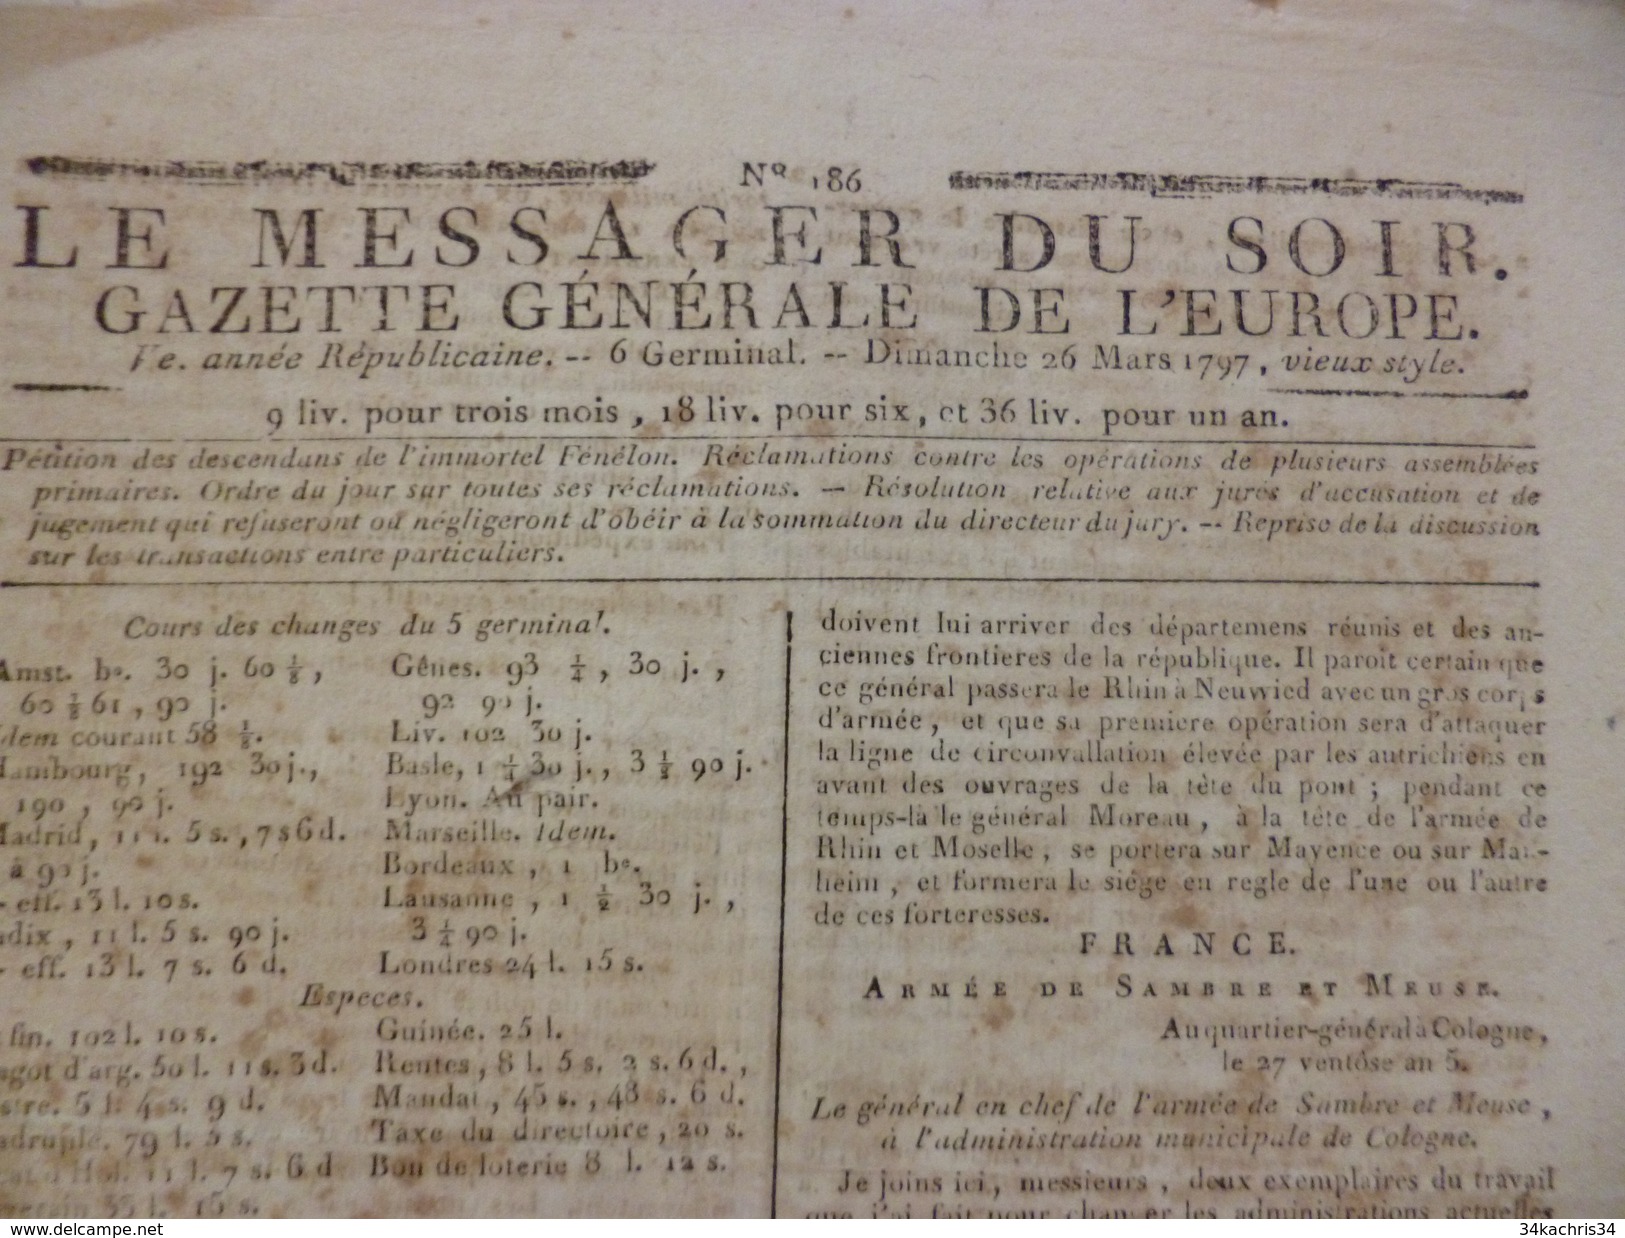 Nº 186
LE MESSAGER DU SOIR.
GAZETTE GÉNÉRALE DE L'EUROPE.
Ve. année Républicaine. -- 6 Germinal. -- Dimanche 26 Mars 1797, vieux style.
9 liv. pour trois mois, 18 liv. pour six, et 36 liv. pour un an.
Pétition des descendans de l'immortel Fénélon. Réclamations contre les opérations de plusieurs assemblées
primaires. Ordre du jour sur toutes ses réclamations. — Résolution relative aux jurés d'accusation et de
jugement qui refuseront ou négligeront d'obéir à la sommation du directeur du jury. -- Reprise de la discussion
sur les transactions entre particuliers.
Cours des changes du 5 germinal.
Amst. bo. 30 j. 60 1/8,
60 1/2 61, 90 j.
Idem courant 58 1/2.
Hambourg, 192 30 j.,
190, 90 j.
Madrid, 11 l. 5 s., 7 s 6 d.
à 90 j.
- eff. 13 l. 10 s.
adix, 11 l. 5 s. 90 j.
- eff. 13 l. 7 s. 6 d.
Gênes. 93 1/4, 30 j.,
92 90 j.
Liv. 102 30 j.
Basle, 1 1/4 30 j., 3 1/2 90 j.
Lyon. Au pair.
Marseille. Idem.
Bordeaux, 1 be.
Lausanne, 1 1/2 30 j.,
3 1/4 90 j.
Londres 24 l. 15 s.
Especes.
fin. 102 l. 10 s.
ngot d'arg. 50 l. 11 s. 3 d.
stre. 5 l. 4 s. 9 d.
adruple. 79 l. 5 s.
d'Hol. 11 l. 7 s. 6 d
35 l. 15 s.
Guinée. 25 l.
Rentes, 8 l. 5 s. 2 s. 6 d.,
Mandat, 45 s., 48 s. 6 d.
Taxe du directoire, 20 s.
Bon de loterie 8 l. 12 s.
doivent lui arriver des départemens réunis et des an-
ciennes frontieres de la république. Il paroit certain que
ce général passera le Rhin à Neuwied avec un gros corps
d'armée, et que sa premiere opération sera d'attaquer
la ligne de circonvallation élevée par les autrichiens en
avant des ouvrages de la tête du pont; pendant ce
temps-là le général Moreau, à la tête de l'armée de
Rhin et Moselle, se portera sur Mayence ou sur Man-
heim, et formera le siége en regle de l'une ou l'autre
de ces forteresses.
FRANCE.
ARMÉE DE SAMBRE ET MEUSE.
Au quartier-général à Cologne,
le 27 ventôse an 5.
Le général en chef de l'armée de Sambre et Meuse,
à l'administration municipale de Cologne.
Je joins ici, messieurs, deux exemplaires du travail
que j'ai fait pour changer les administrations actuelles
34kachris34
www.delcampe.net